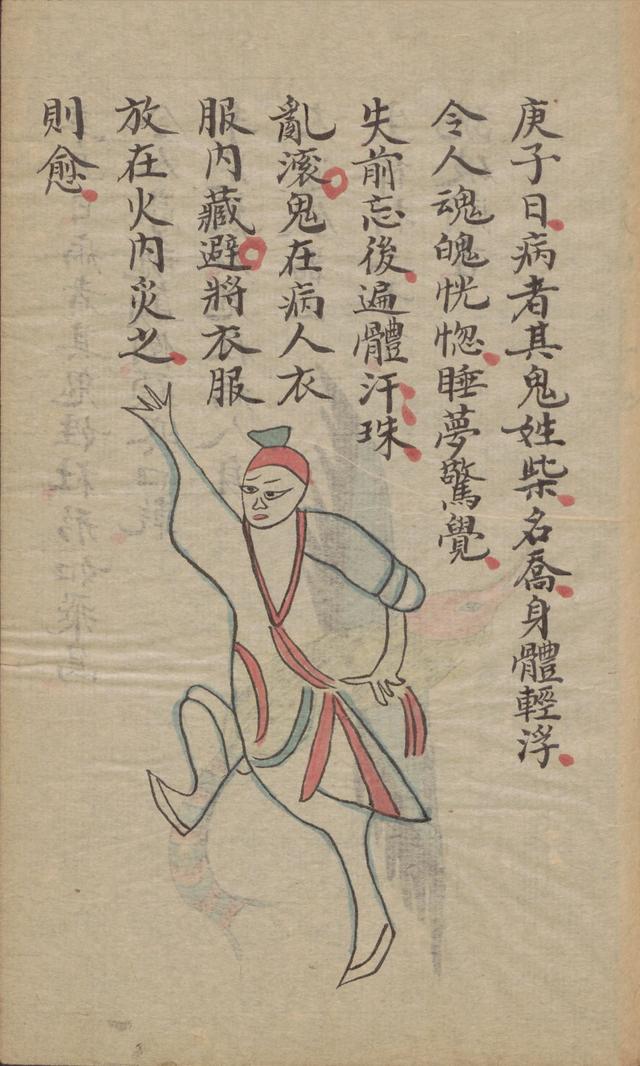 庚子日病者其鬼姓柴名喬身體輕浮
令人魂魄恍惚睡夢驚覺
失前忘後遍體汗珠
亂滚鬼在病人衣
服内藏避將衣服
放在火内災之
則愈